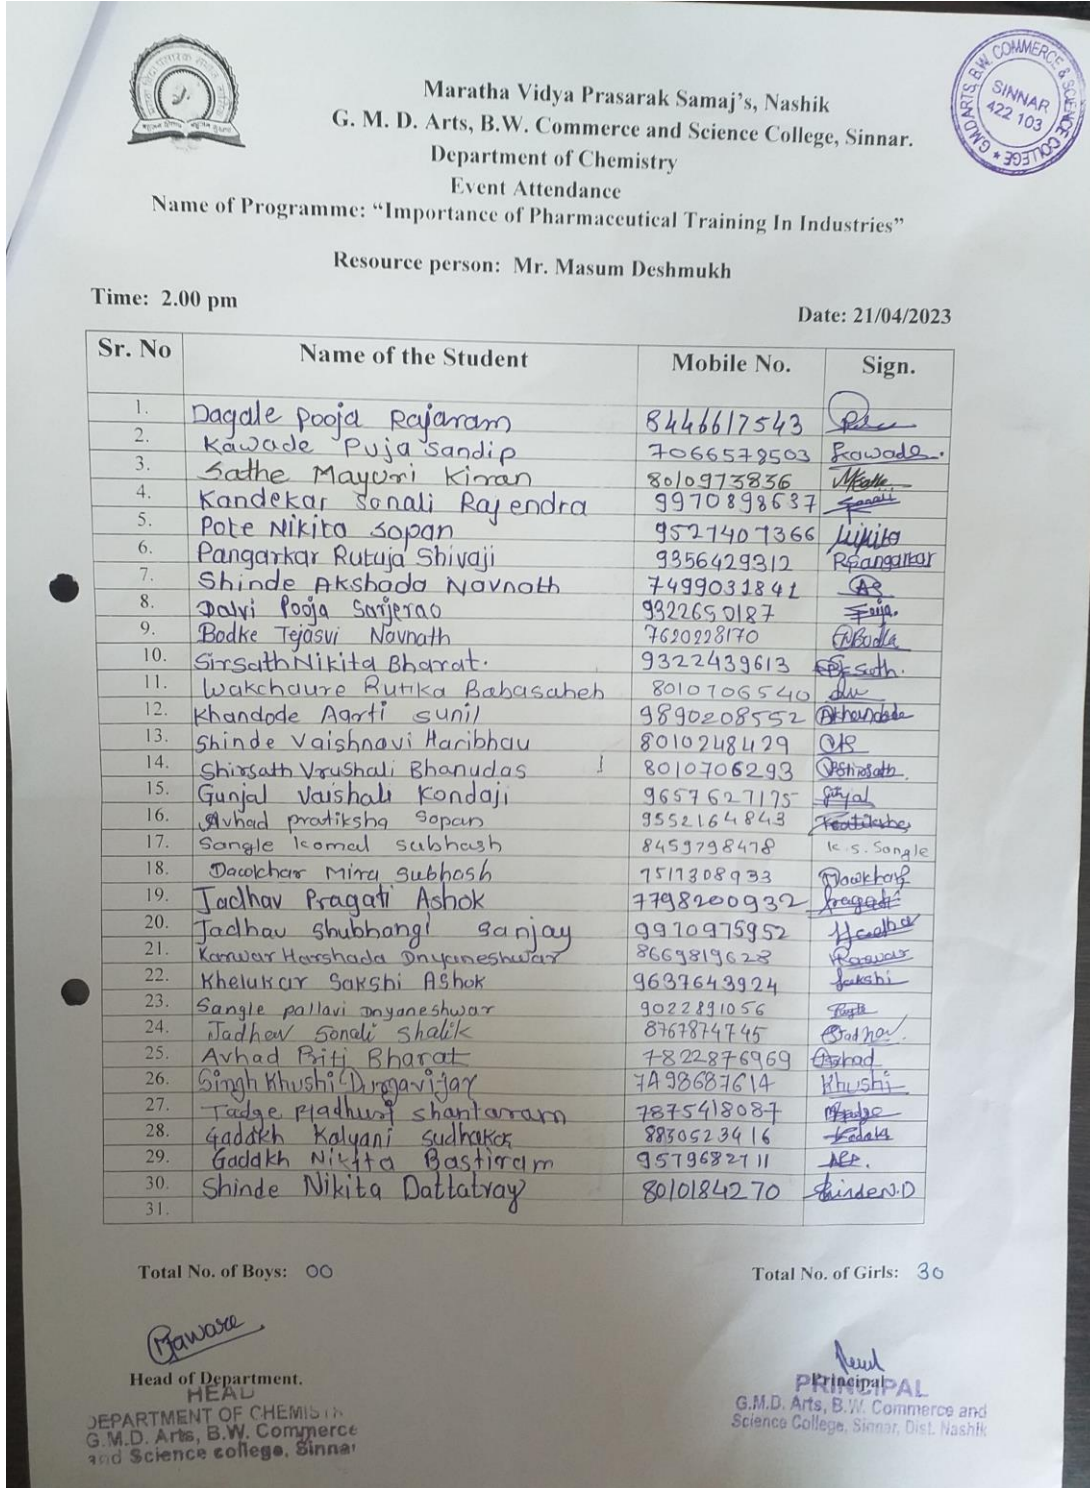 Maratha Vidya Prasarak Samaj's, Nashik
G. M. D. Arts, B.W. Commerce and Science College, Sinnar.
Department of Chemistry
Event Attendance
Name of Programme: “Importance of Pharmaceutical Training In Industries”
G.M.D ARTS, B.W. COMMERCE & SCIENCE COLLEGE
SINNAR
422 103
Resource person: Mr. Masum Deshmukh
Time: 2.00 pm
Date: 21/04/2023
Sr. No Name of the Student Mobile No. Sign.
1. Dagale Pooja Rajaram 8446617543
2. Kawade Puja Sandip 7066578503 Kawade.
3. Sathe Mayuri Kiran 8010973836
4. Kandekar Sonali Rajendra 9970898637 Sonali
5. Pote Nikita Sopan 9527407366 Nikita
6. Pangarkar Rutuja Shivaji 9356429312 Rpangarkar
7. Shinde Akshada Navnath 7499031841 AS
8. Dalvi Pooja Sarjerao 9322650187 Pooja.
9. Bodke Tejasvi Navnath 7620228170 Bodke
10. Sirsath Nikita Bharat. 9322439613
11. Wakchaure Rutika Babasaheb 8010706540
12. Khandode Aarti Sunil 9890208552 Akhandode
13. Shinde Vaishnavi Haribhau 8010248429
14. Shirsath Vrushali Bhanudas 8010706293 VBShirsath
15. Gunjal Vaishali Kondaji 9657627175
16. Avhad pratiksha Sopan 9552164843 Pratiksha
17. Sangle Komal Subhash 8459798478 K.S. Sangle
18. Dawkhar Mira Subhash 7517308933 Dawkhar
19. Jadhav Pragati Ashok 7798200932 Pragati
20. Jadhav Shubhangi Sanjay 9970975952
21. Kanwar Harshada Dnyaneshwar 8669819628
22. Khelukar Sakshi Ashok 9637643924 Sakshi
23. Sangle pallavi Dnyaneshwar 9022891056
24. Jadhav Sonali Shalik 8767874745 SJadhav.
25. Avhad Priti Bharat 7822876969 Avhad
26. Singh Khushi Durgavijay 7498687614 Khushi
27. Tadge Madhuri Shantaram 7875418087
28. Gadakh Kalyani Sudhakar 8830523416 Gadakh
29. Gadakh Nikita Bastiram 9579682711
30. Shinde Nikita Dattatray 8010184270 Shinde N.D
31.
Total No. of Boys: 00
Total No. of Girls: 30
Head of Department.
HEAD
DEPARTMENT OF CHEMISTR
G.M.D. Arts, B.W. Commerce
and Science college, Sinnar
Principal
PRINCIPAL
G.M.D. Arts, B.W. Commerce and
Science College, Sinnar, Dist. Nashik